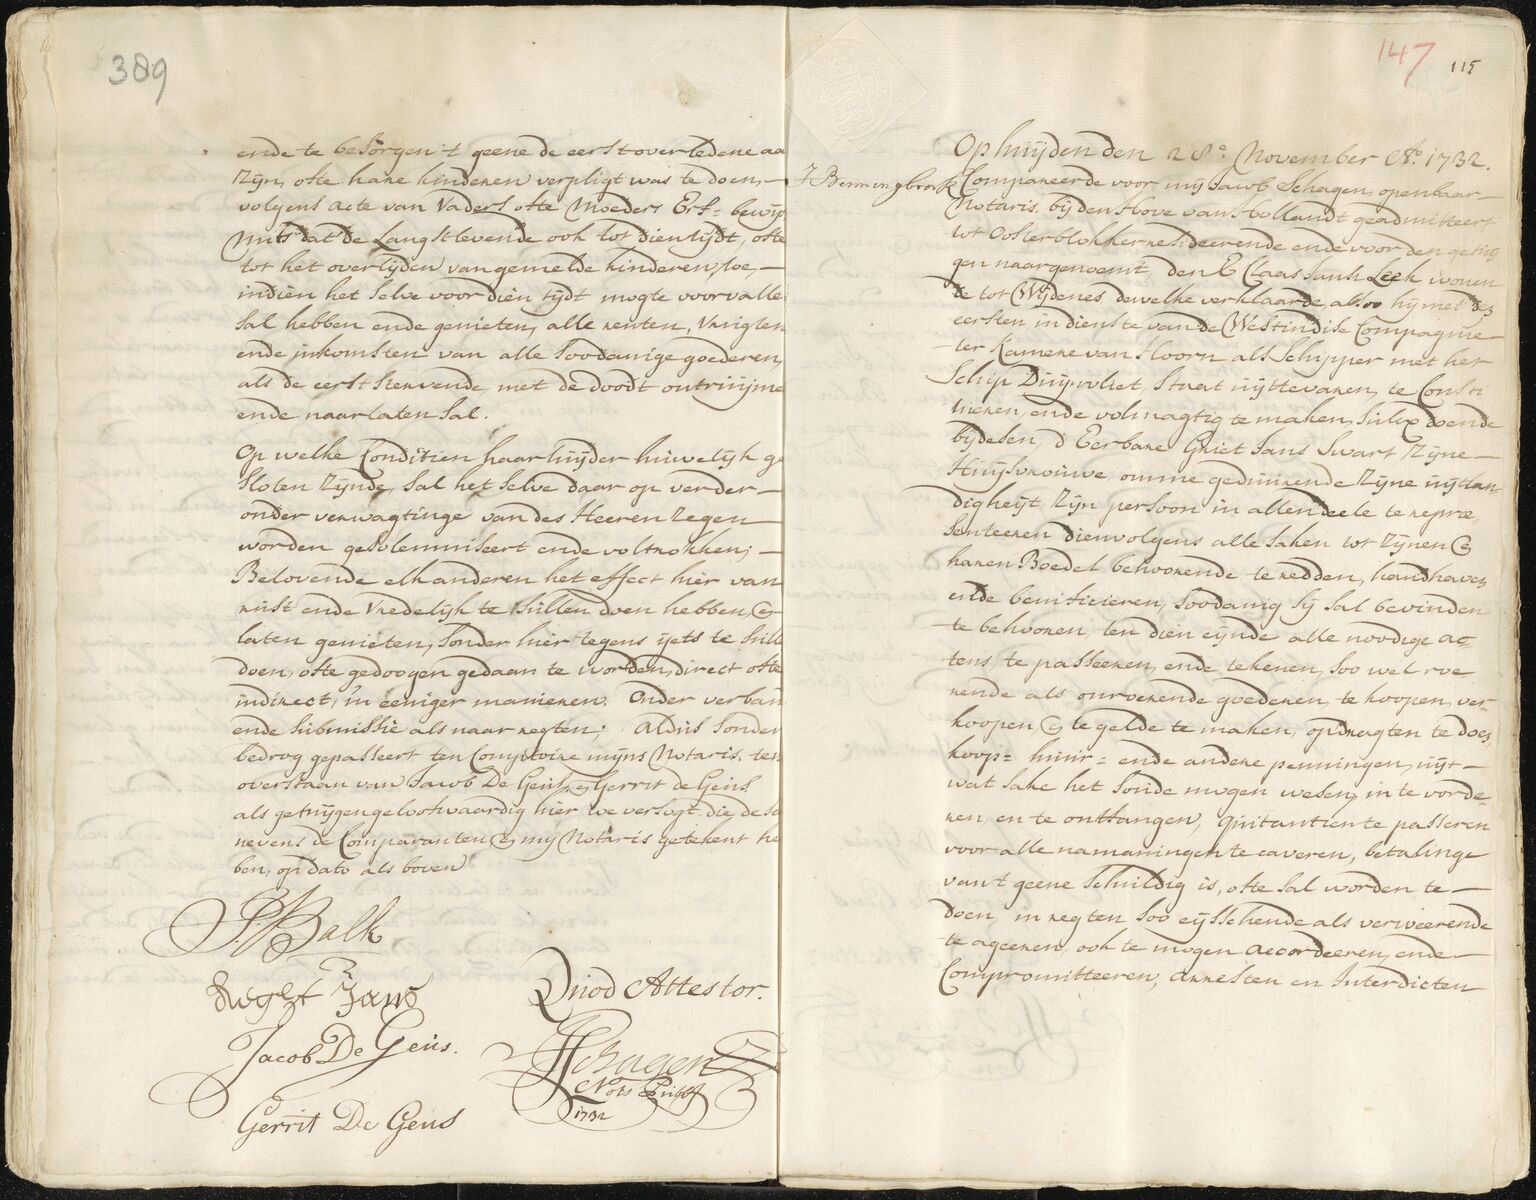 389
ende te besorgen 't geene de eerst overledene aa
Zijn, ofte hare kinderen verpligt was te doen,
volgens acte van Vaders ofte Moeders Erf= bewijs
mits dat de Langstlevende ook tot dien tijdt, ofte
tot het overlijden van gemelde kinderen, soe,
indien het selve voor dien tijdt mogte voorvalle
sal hebben ende genieten, alle renten, vrugten
ende inkomsten van alle soodanige goederen,
als de eerst stervende, met de doodt ontruijme
ende naarlaten sal.
Op welke Conditien haarluijder huwelijk ge
sloten Zijnde, sal het selve daar op verder
onder verwagtinge van des Heeren Zegen
worden gesolemniseert ende voltrokken;
Belovende elkanderen het effect hier van
rust ende vredelijk te sullen doen hebben, &
laten genieten, sonder hier tegens ijets te sulle
doen, ofte gedoogen gedaan te worden, direct ofte
indirect, in eeniger manieren. Onder verban
ende submissie als naar regten; Aldus sonder
bedrog gepasseert ten Comptoire mijns Notaris, ten
overstaan van Jacob De Geus, & Gerrit de Geus
als getuijgen geloofwaardig hier toe versogt, die dese
nevens de Comparanten & my Notaris getekent he
ben, op dato als boven
P. Balk
Jans
Jacob De Geus.
Gerrit De Geus
Quod Attestor.
JSchagen
Nots Publ
1732
147
115
J Benningbroek
Op huijden den 28e. November Ao. 1732.
Compareerde voor mij Jacob Schagen, openbaar
Notaris, bij den Hove van Hollandt geadmitteert
tot Oosterblokker resideerende ende voor den getuij
gen naargenoemt, den E Claas Jansz Leek wonen
de tot Wijdenes dewelke verklaarde alsoo hij met den
eersten in dienste van de Westindise Compagnie
ter Kamere van Hoorn als Schipper met het
Schip Duijnvliet, staat uijttevaren, te Consti
tueren, ende volmagtig te maken, sulx doende
bij desen, d' Eerbare Griet Jans Swart Zijne
Huijsvrouwe, omme geduirende Zijne uijtlan
digheijt Zijn persoon in allen deele te repræ
senteeren dienvolgens alle saken tot Zijnen &
haren Boedel behoorende te redden, handhaven
ende benificieren, soodanig sij sal bevinden
te behooren, ten dien eijnde alle noodige ac
tens te passeeren, ende tekenen, soo wel roe
rende als onroerende goederen te koopen, ver
koopen & te gelde te maken, opdragten te doen,
koop= huur= ende andere penningen, uijt
wat sake het soude mogen wesen, in te vorde
ren en te ontfangen, quitantien te passeren
voor alle namaningen te caveren, betalinge
van 't geene schuldig is, ofte sal worden te
doen, in regten soo eijsschende als verweerende
te ageeren, ook te mogen accordeeren, ende
Compromitteeren, arresten en Interdicten